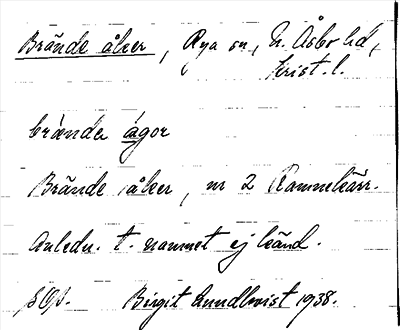 Brände åker, Rya sn, N. Åsbo hd,
Krist. l.
brànde ágor
Brände åker, nr 2 Ramnekärr.
Anledn. t. namnet ej känd.
Birgit Lundkvist 1938.